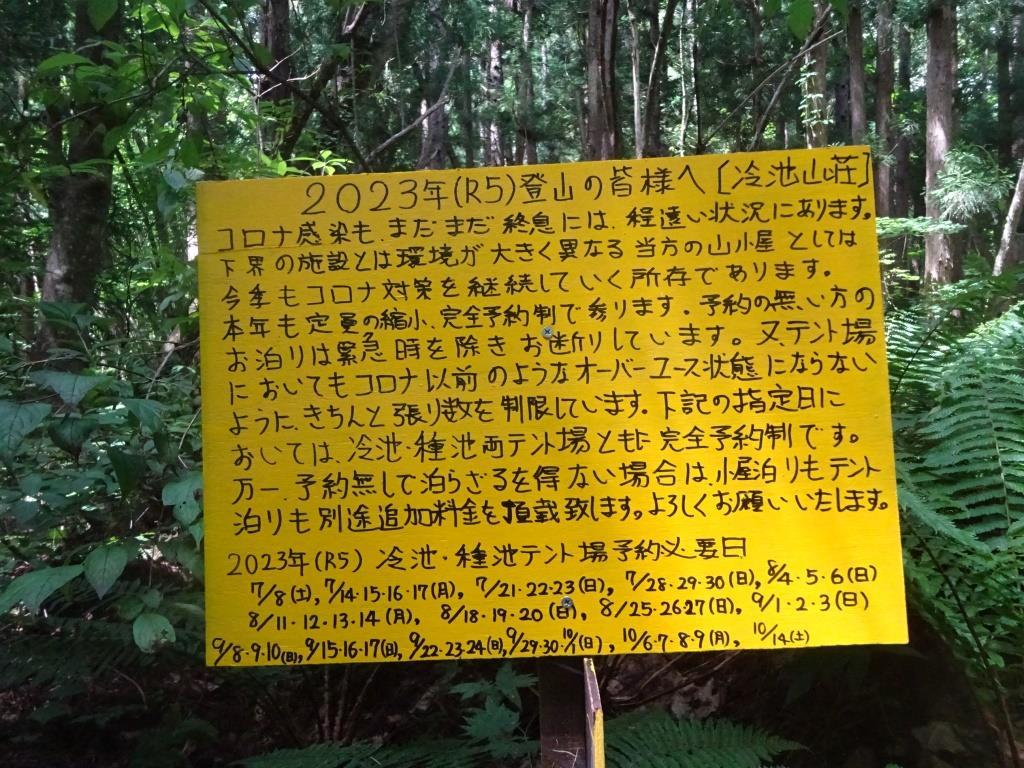 2023年(R5)登山の皆様へ[冷池山荘]
コロナ感染も、まだまだ終息には、程遠い状況にあります。
下界の施設とは環境が大きく異なる当方の山小屋としては
今季もコロナ対策を継続していく所存であります。
本年も定員の縮小、完全予約制で参ります。予約の無い方の
お泊りは緊急時を除きお断りしています。又、テント場
においてもコロナ以前のようなオーバーユース状態にならない
ように、きちんと張り数を制限しています。下記の指定日に
おいては、冷池・種池両テント場ともに完全予約制です。
万一、予約無しで泊らざるを得ない場合は、小屋泊りもテント
泊りも別途追加料金を頂戴致します。よろしくお願いいたします。
2023年(R5) 冷池・種池テント場予約必要日
7/8(土), 7/14・15・16・17(月), 7/21・22・23(日), 7/28・29・30(日), 8/4・5・6(日)
8/11・12・13・14(月), 8/18・19・20(日), 8/25・26・27(日), 9/1・2・3(日)
9/8・9・10(日), 9/15・16・17(日), 9/22・23・24(日), 9/29・30・10/1(日), 10/6・7・8・9(月), 10/14(土)